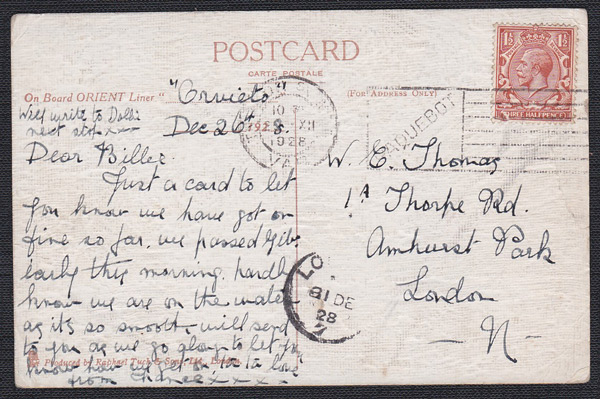 POSTCARD
CARTE POSTALE
On Board ORIENT Liner "
"Orvieto"
(For Address Only)
write to
next
Dec 26th 1928.
Dear
Just a card to let
you know we have got on
fine so far, we passed Gib.
early this morning, hardly
know we are on the water
as it's so smooth, will send
to you as we go along to let you
know how we get on ta ta love
from
Produced by Raphael Tuck & Sons, Ltd., London.
1928
PAQUEBOT
1½ 1½
THREE HALFPENCE
W. E. Thomas
1A Thorpe Rd.
Amhurst Park
London
- N -
LO
31 DE
28